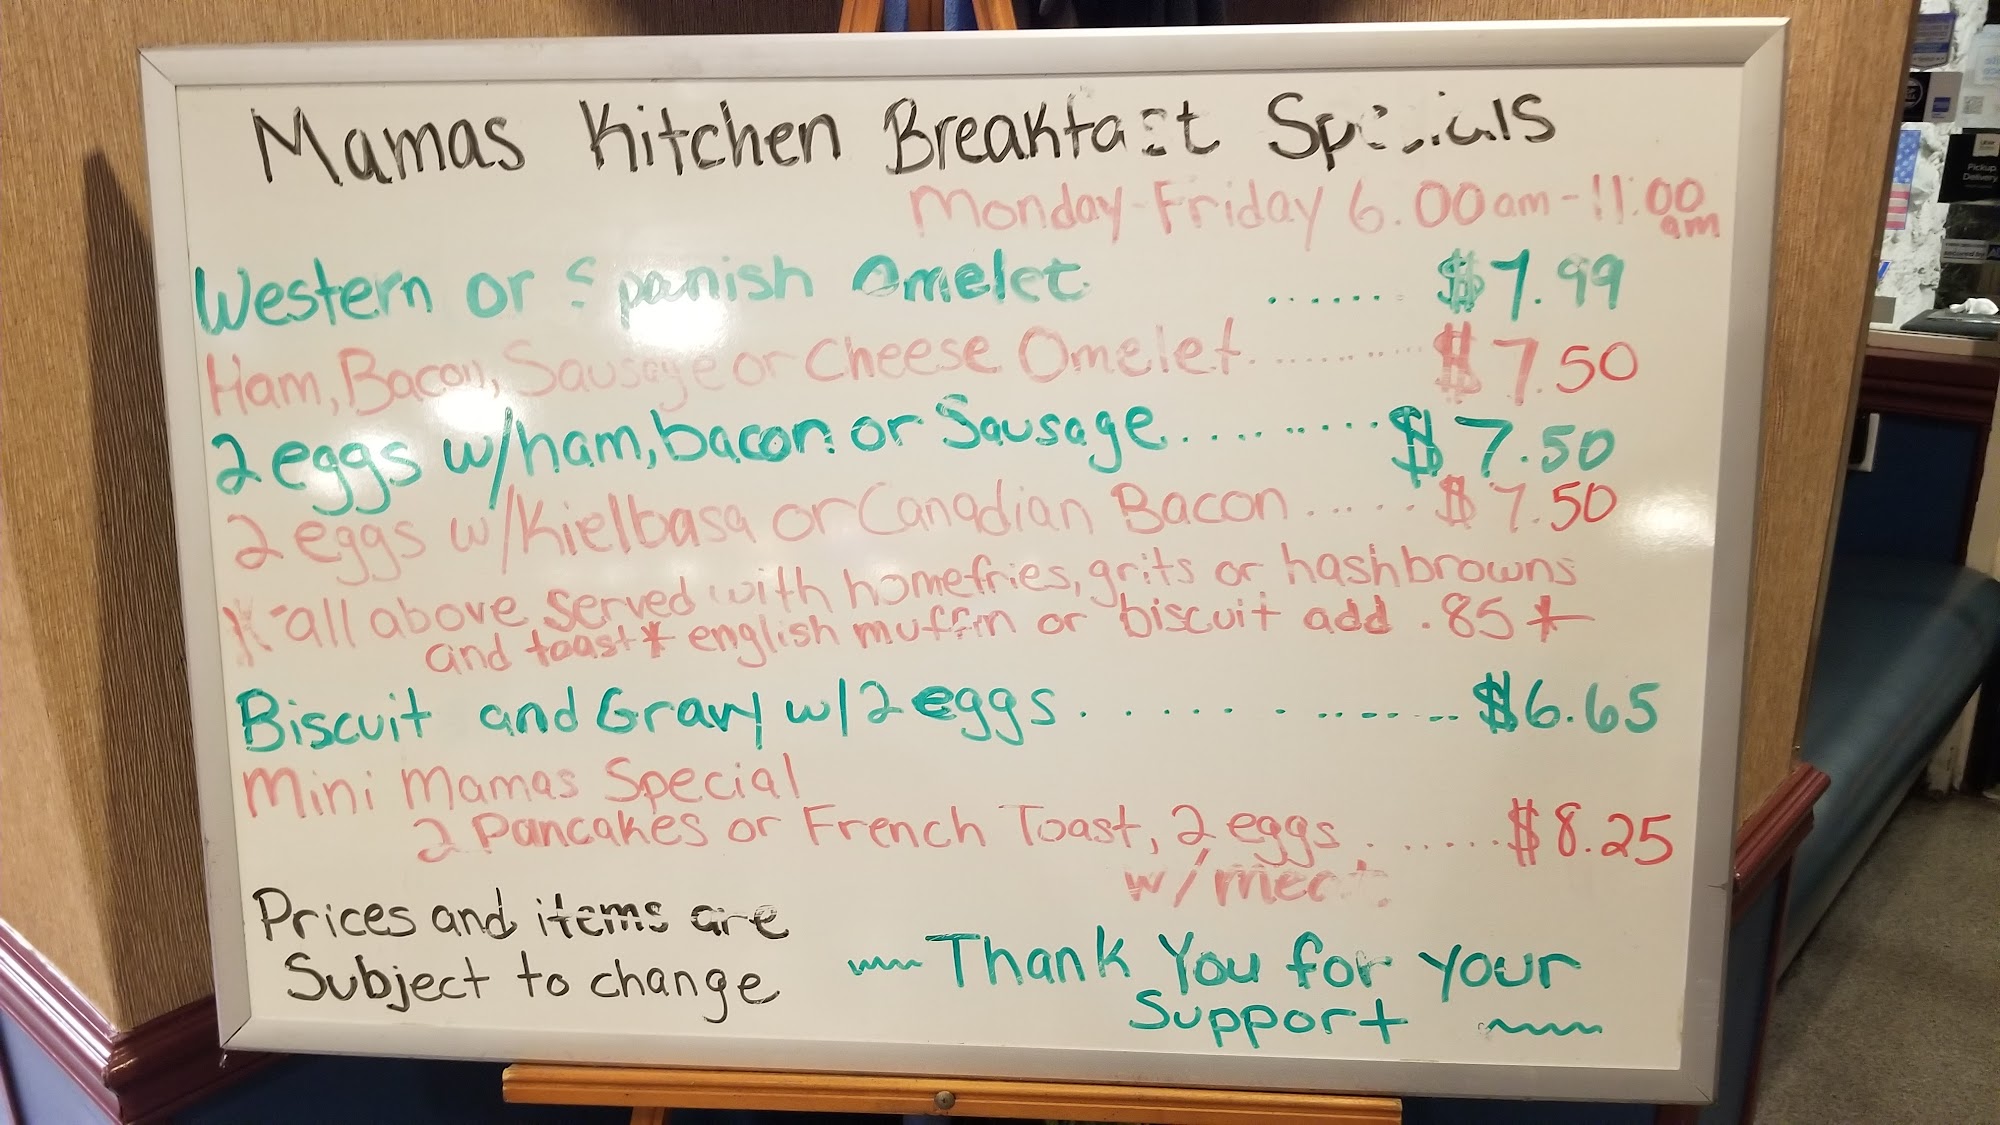 Mamas Kitchen Breakfast Specials
Monday-Friday 6.00am-11:00
am
Western or Spanish Omelet ...... $7.99
Ham, Bacon, Sausage or Cheese Omelet .......... $7.50
2 eggs w/ham, bacon or Sausage.......... $7.50
2 eggs w/Kielbasa or Canadian Bacon ..... $7.50
*-all above served with homefries, grits or hashbrowns
and toast* english muffin or biscuit add .85*
Biscuit and Gravy w/2 eggs ............. $6.65
Mini Mamas Special
2 Pancakes or French Toast, 2 eggs ....... $8.25
w/meat
Prices and items are
Subject to change
~~Thank You for your
Support ~~
Pickup
Delivery